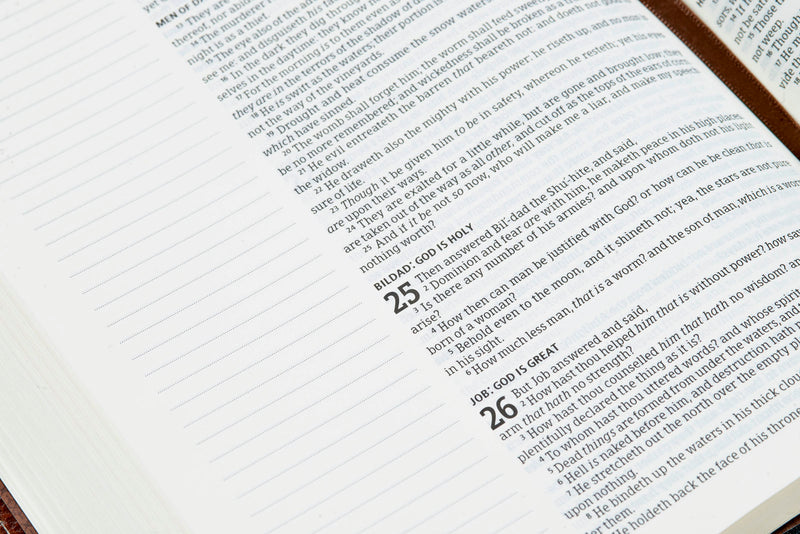 MEN OF
thereof nor abi
14 The murderer
night is as a thief.
15 The eye also of the ad
see me: and disguiseth his fa
16 In the dark they dig through
selves in the daytime: they know
17 For the morning is to them even as
they are in the terrors of the shadow of de
18 He is swift as the waters; their portion is
not the way of the vineyards.
19 Drought and heat consume the snow waters:
which have sinned.
20 The womb shall forget him; the worm shall feed swee
be no more remembered; and wickedness shall be broken as a
21 He evil entreateth the barren that beareth not: and doeth not goo
the widow.
22 He draweth also the mighty with his power: he riseth up, and no man is
sure of life.
23 Though it be given him to be in safety, whereon he resteth; yet his eyes
are upon their ways.
24 They are exalted for a little while, but are gone and brought low; they
are taken out of the way as all other, and cut off as the tops of the ears of corn.
25 And if it be not so now, who will make me a liar, and make my speech
nothing worth?
BILDAD: GOD IS HOLY
25 Then answered Bil'-dad the Shu'-hite, and said,
2 Dominion and fear are with him, he maketh peace in his high places.
3 Is there any number of his armies? and upon whom doth not his light
arise?
4 How then can man be justified with God? or how can he be clean that is
born of a woman?
5 Behold even to the moon, and it shineth not; yea, the stars are not pure
in his sight.
6 How much less man, that is a worm? and the son of man, which is a wor
JOB: GOD IS GREAT
26 But Job answered and said,
2 How hast thou helped him that is without power? how sav
arm that hath no strength?
3 How hast thou counselled him that hath no wisdom? an
plentifully declared the thing as it is?
4 To whom hast thou uttered words? and whose spiri
5 Dead things are formed from under the waters, and
6 Hell is naked before him, and destruction hath
7 He stretcheth out the north over the empty pl
upon nothing.
8 He bindeth up the waters in his thick clou
der them.
He holdeth back the face of his throne